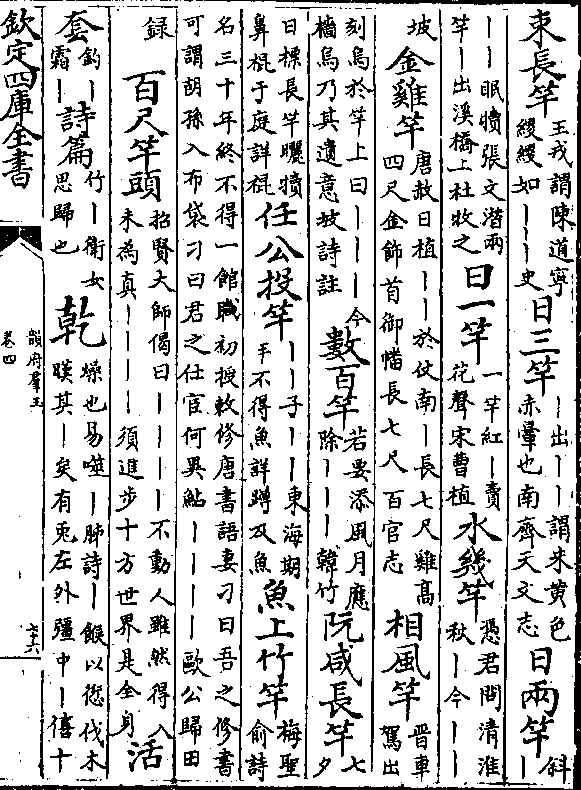 束長竿 王戎謂陳道寧
緩緩如丨丨丨史 日三竿 丨出丨丨謂朱黄色
赤暈也南齊天文志 日兩竿 斜
丨
丨丨眠犢張文潛兩
竿丨出溪橋上杜牧之 日一竿 一竿紅丨賣
花聲宋曹植 水幾竿 憑君問清淮
秋丨今丨丨
坡 金雞竿 唐赦日植丨丨於仗南丨長七尺雞高
四尺金飾首御幡長七尺 百官志 相風竿 晋車
駕出
刻烏於竿上曰丨丨丨今
檣烏乃其遺意坡詩註 數百竿 若要添風月應
除丨丨丨韓竹 阮咸長竿 七
夕
日標長竿曬犢
鼻褌于庭詳褌 任公投竿 丨丨子丨丨東海期
手不得魚詳蹲及魚 魚上竹竿 梅聖
俞詩
名三十年終不得一館職初授敕修唐書語妻刁曰吾之修書
可謂胡孫入布袋刁曰君之仕宦何異鮎丨丨丨丨歐公歸田
録 百尺竿頭 招賢大師偈曰丨丨丨丨不動人雖然得入
未為真丨丨丨丨須進步十方世界是全身 活
套 釣丨
霜丨 詩篇 竹丨衛女
思歸也 乾 燥也易噬丨胏詩丨餱以愆伐木
暵其丨矣有兎左外彊中丨僖十
欽定四庫全書
韻府羣玉
卷四